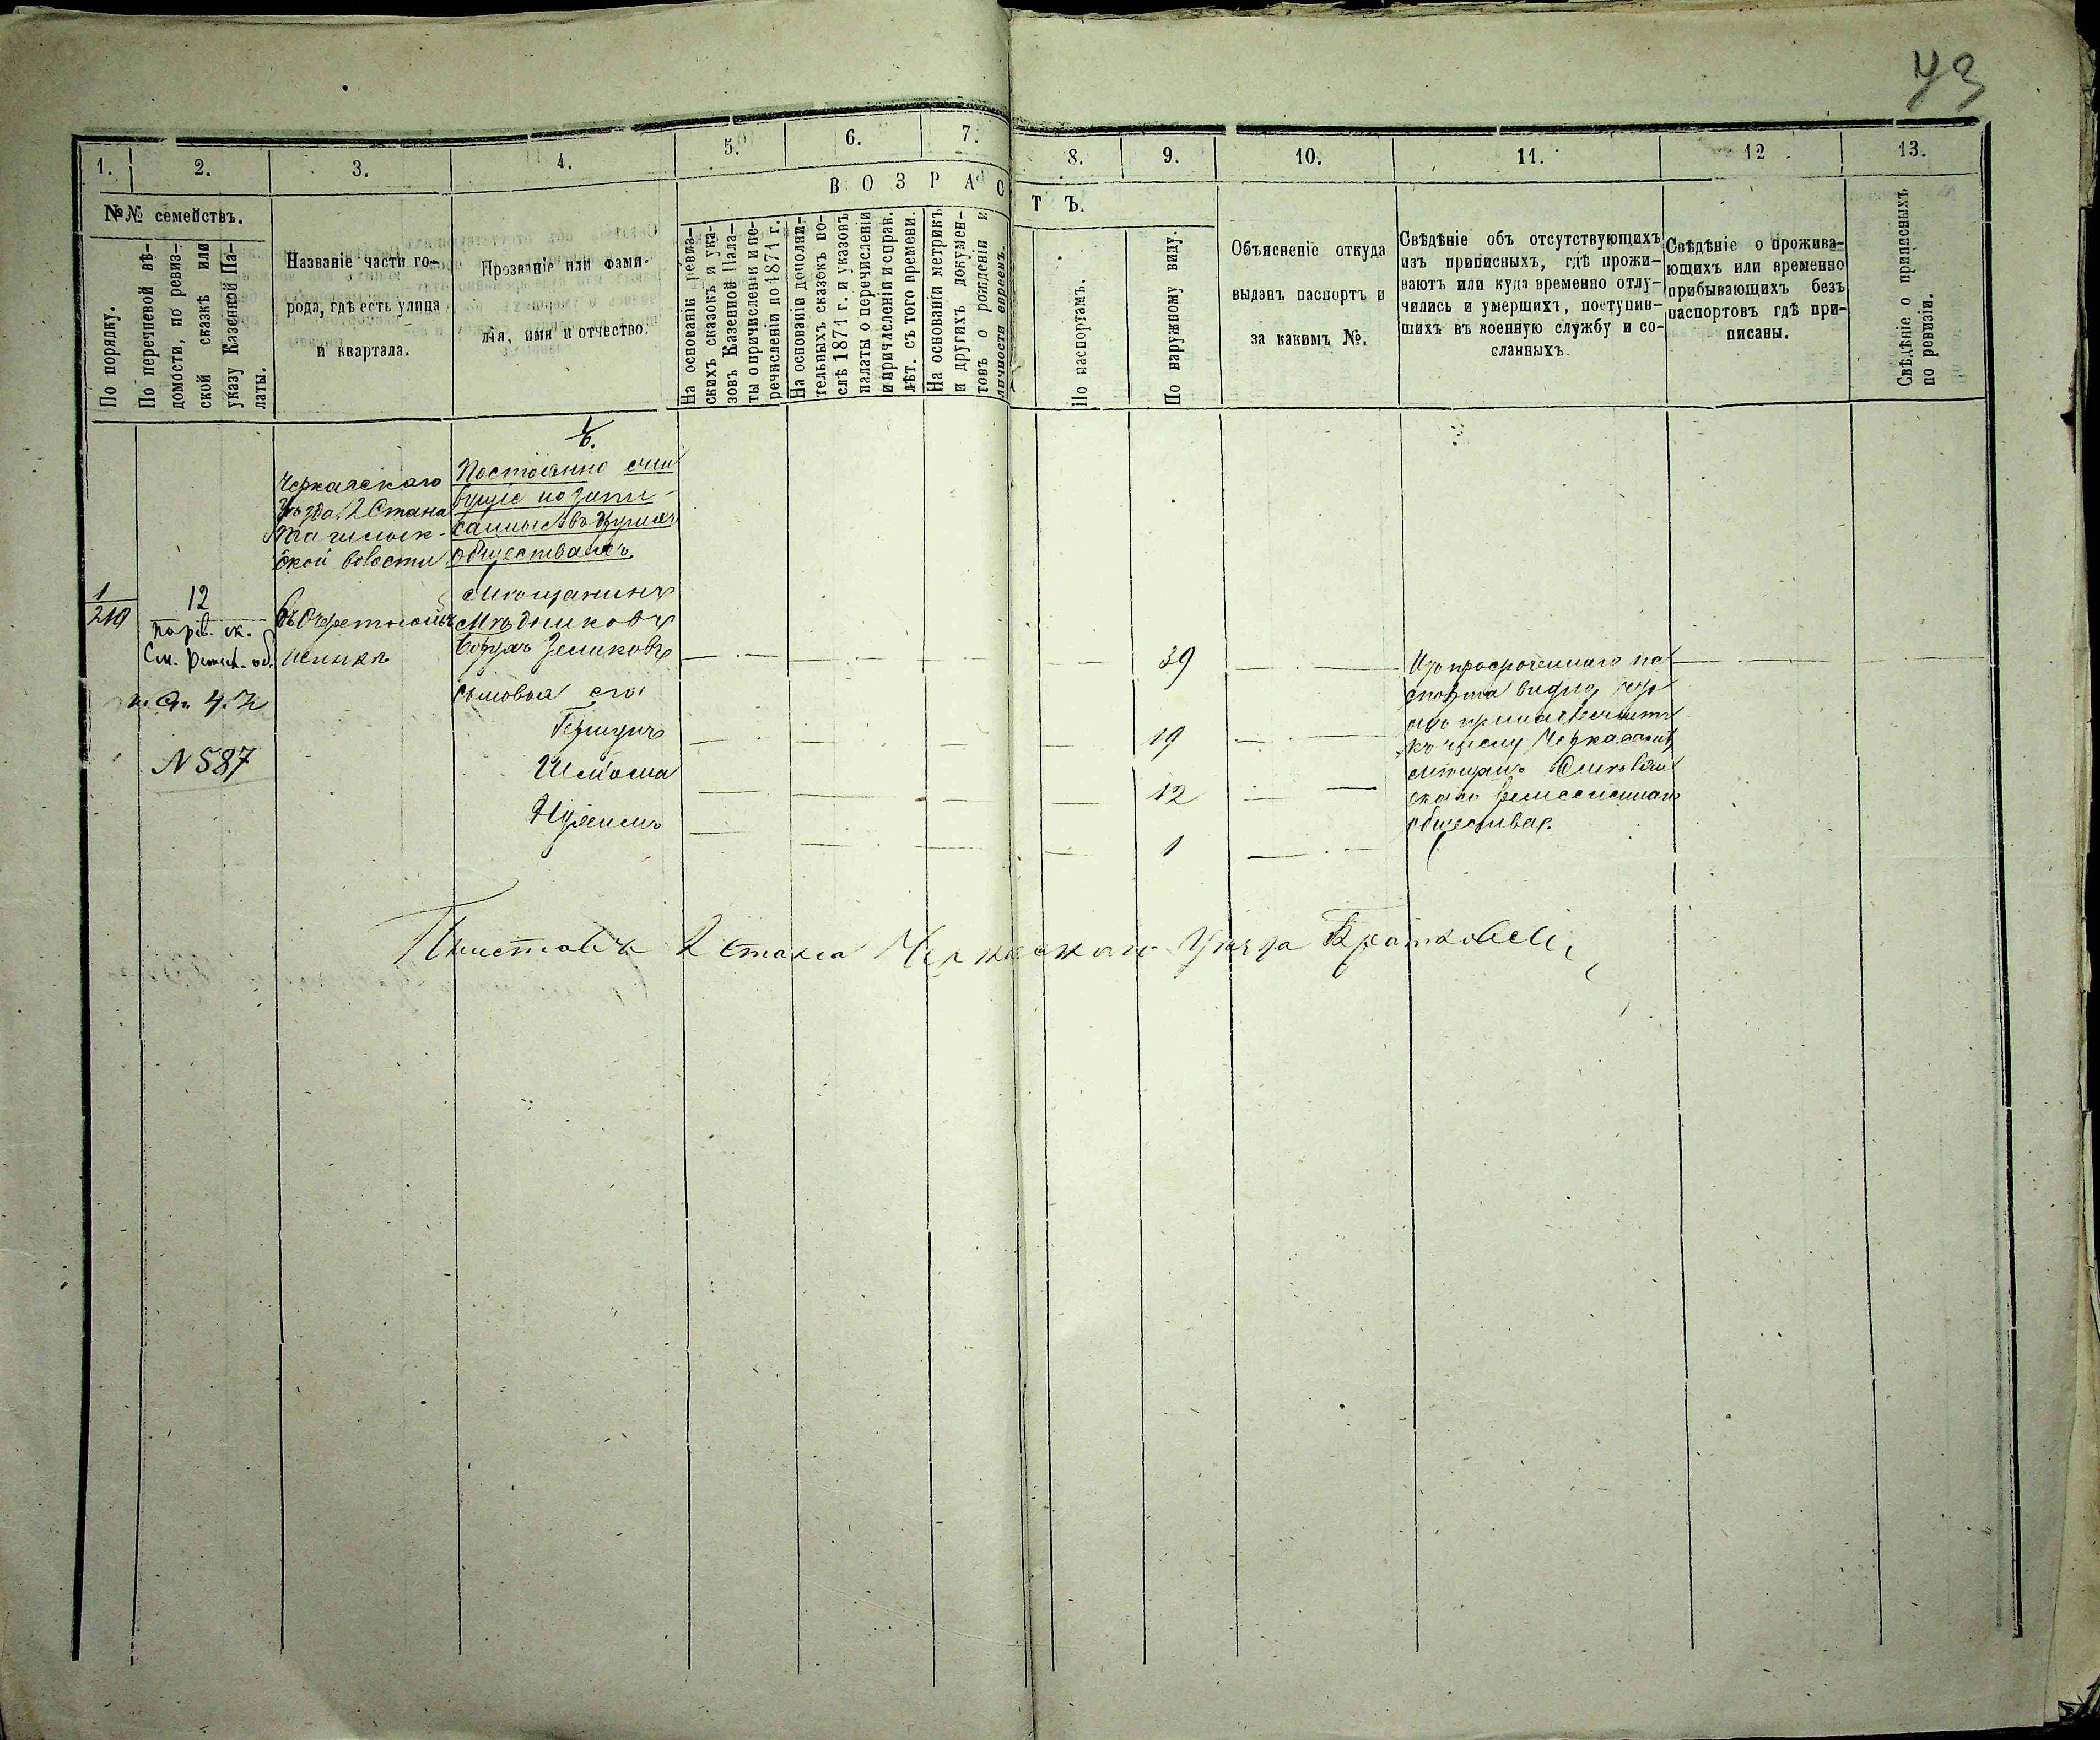 73
1.
2.
3.
4.
5.
6.
7.
8.
9.
10.
11.
12
13.
№№ семействъ.
По порядку.
По перечневой вѣ-
домости, по ревиз-
ской сказкѣ или
указу Казенной Па-
латы.
Названіе части го-
рода, гдѣ есть улица
и квартала.
Прозваніе или фами-
лія, имя и отчество.
ВОЗРАСТЪ.
На основаніи ревиз-
скихъ сказокъ и ука-
зовъ Казенной Пала-
ты о причисленіи и пе-
речисленіи до 1871 г.
На основаніи дополни-
тельныхъ сказокъ по-
слѣ 1871 г. и указовъ
палаты о перечисленіи
и причисленіи и справ.
лѣт. съ того времени.
На основаніи метрикъ
и другихъ докумен-
товъ о рожденіи и
личности евреевъ.
По паспортамъ.
По наружному виду.
Объясненіе откуда
выданъ паспортъ и
за какимъ №.
Свѣдѣніе объ отсутствующихъ
изъ приписныхъ, гдѣ прожи-
ваютъ или куда временно отлу-
чились и умершихъ, поступив-
шихъ въ военную службу и со-
сланныхъ.
Свѣдѣніе о прожива-
ющихъ или временно
прибывающихъ безъ
паспортовъ гдѣ при-
писаны.
Свѣдѣніе о приписныхъ
по ревизіи.
Черкаскаго
уѣзда 2 Стана
ской волости
Постоянно
въ другихъ
обществахъ
1
210
12
См.
N 587
Мѣщанинъ
Мѣдниковъ
Борухъ Зеликовъ 39
сыновья его
Гершунъ 19
Шлиома 12
Нухимъ 1
Изъ просроченнаго па
спорта видно, что
къ числу Черкаскихъ
мѣщанъ
общества.
Приставъ 2 стана Черкаскаго Уѣзда